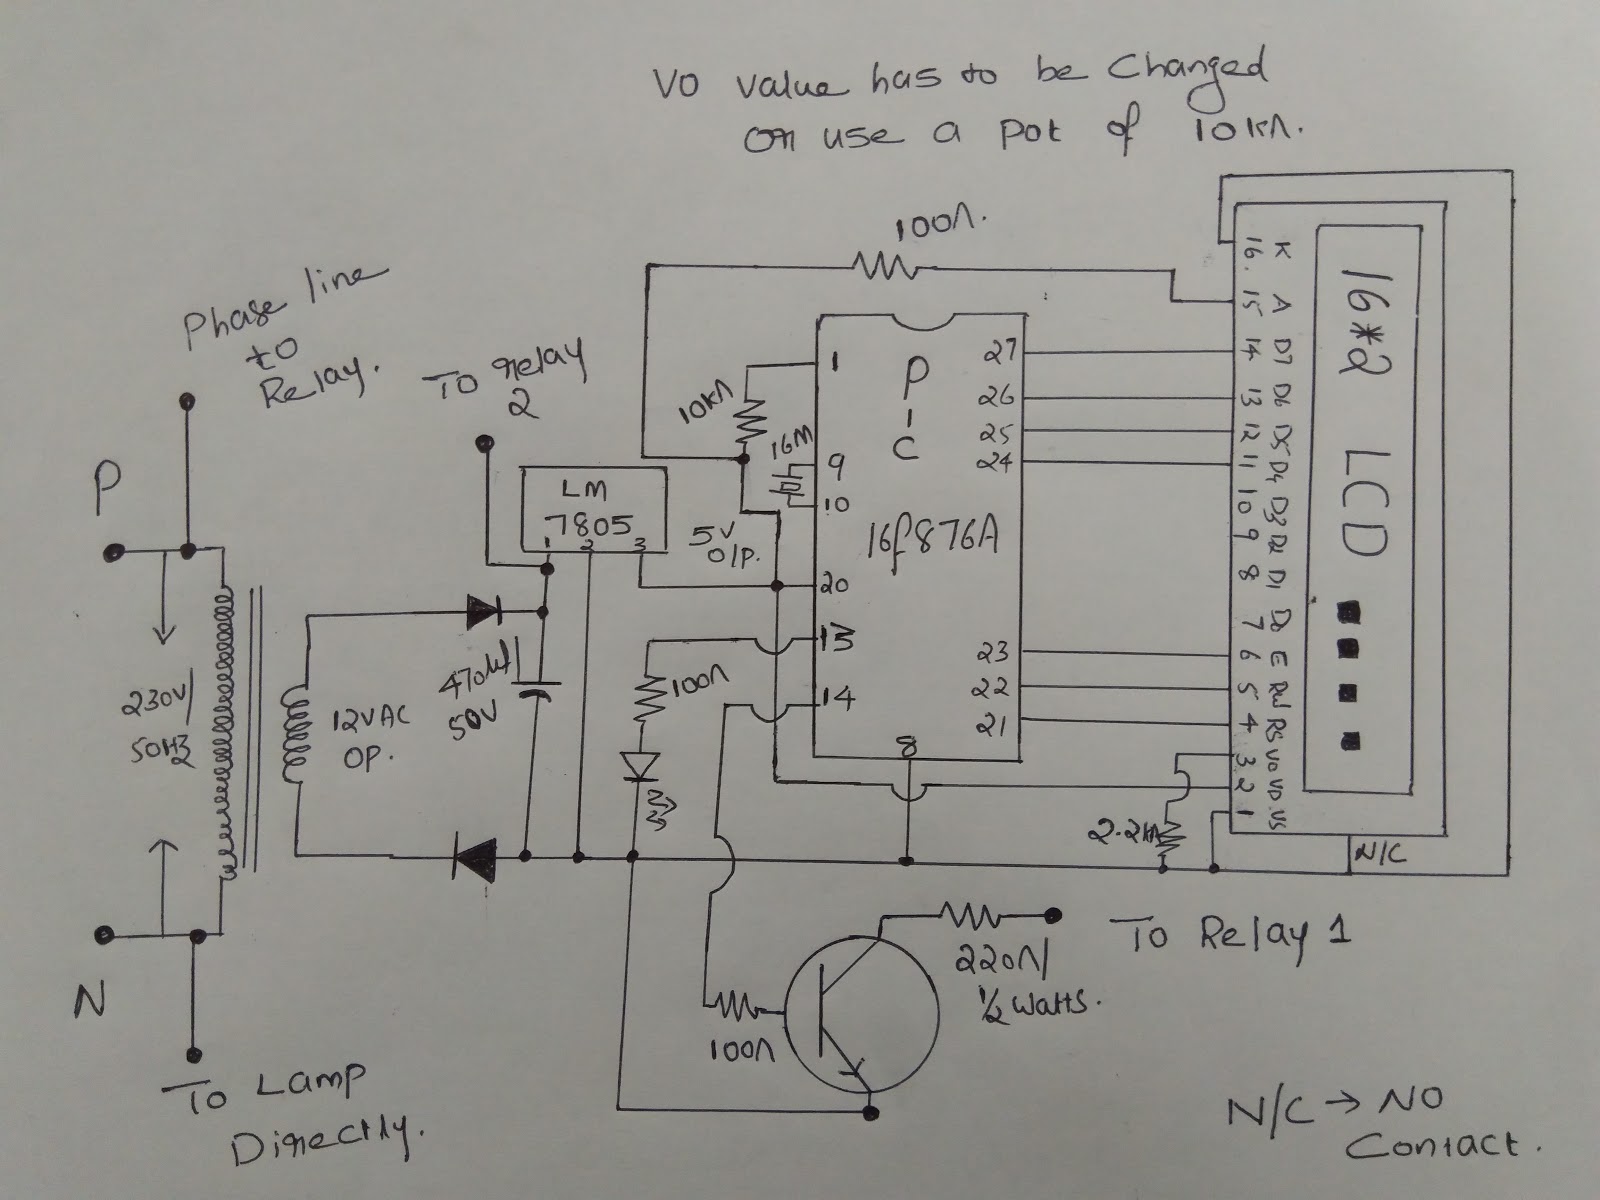 VO value has to be Changed
or use a pot of 10kΩ.
100Ω.
Phase line
to
Relay.
To relay
2
P
N
230V/
50Hz
12V AC
OP.
LM
7805
1 2 3
5V
O/P.
470uf/
50V
10kΩ
16M
100Ω
P
I
C
16f876A
1
9
10
20
13
14
8
27
26
25
24
23
22
21
16. K
15 A
14 D7
13 D6
12 D5
11 D4
10 D3
9 D2
8 D1
7 D0
6 E
5 RW
4 RS
3 VO
2 VD
1 VS
16*2 LCD
2.2kΩ
N/C
To Relay 1
220Ω/
1/2 watts.
100Ω
To Lamp
Directly.
N/C → NO
Contact.